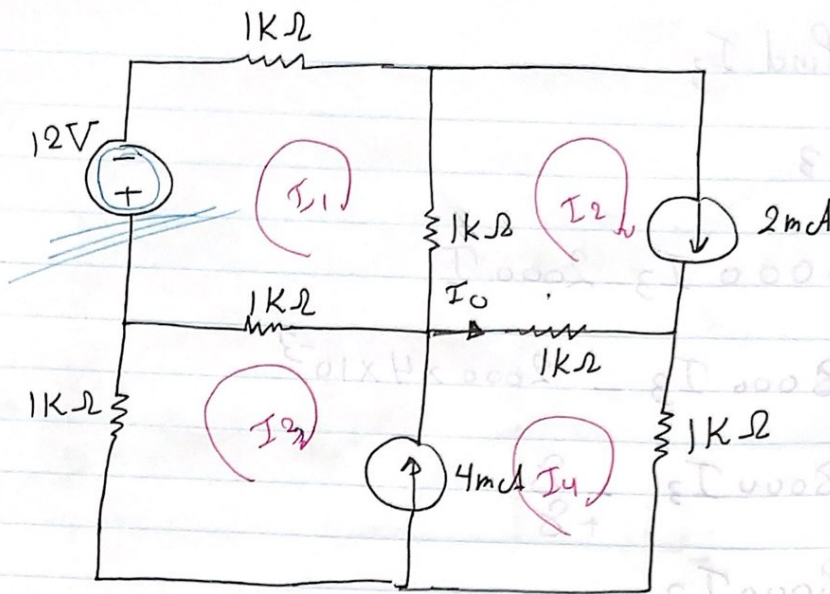 1KΩ
12V
−
+
I1
1KΩ
I2
2mA
1KΩ
I0
1KΩ
1KΩ
I3
4mA
I4
1KΩ